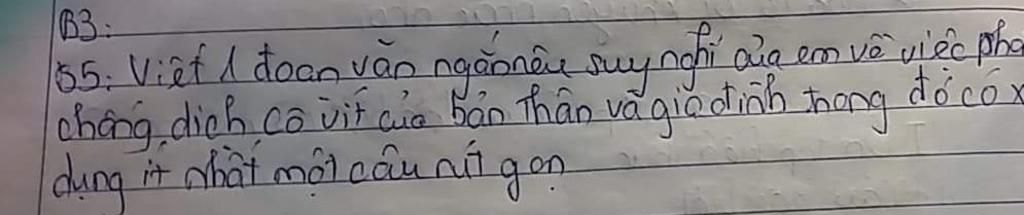 B3:
55: Viết 1 đoạn văn ngắn nêu suy nghĩ của em về việc phò
chống dịch cô vít của bản thân và gia đình trong đó có x
dụng ít nhất một câu rút gọn